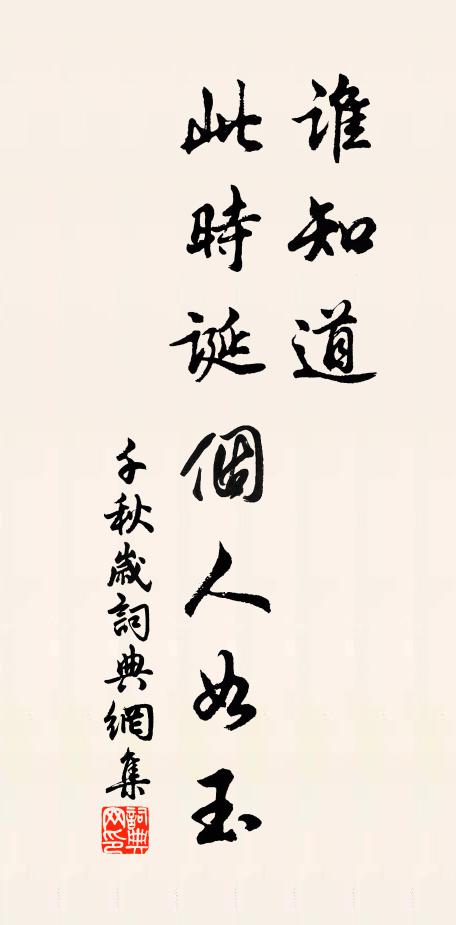 誰知道
此時誕個人如玉
千秋歲詞典網集
詞典網印